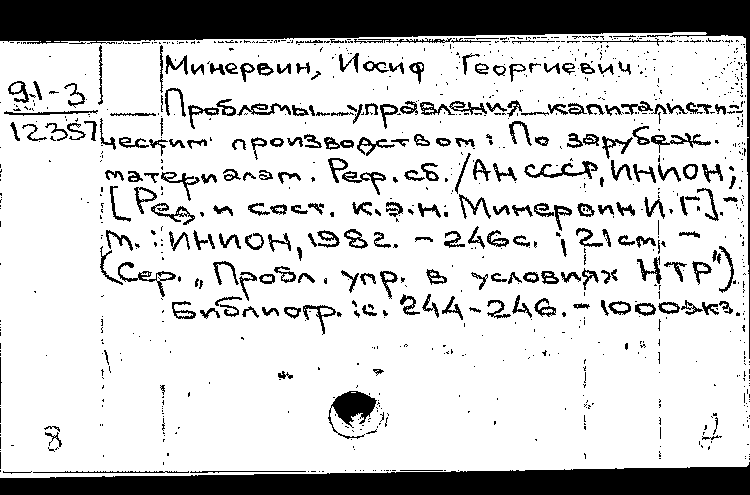 Минервин, Иосиф Георгиевич.
91-3
Проблемы управления капиталисти-
12357
ческим производством: По зарубеж.
материалам. Реф. сб. /АН СССР, ИНИОН;
[Ред. и сост. к.э.н. Минервин И.Г.].-
М.: ИНИОН, 1982. - 246с.; 21см. -
(Сер. „Пробл. упр. в условиях НТР")
Библиогр.: с. 244-246. - 1000экз.
8